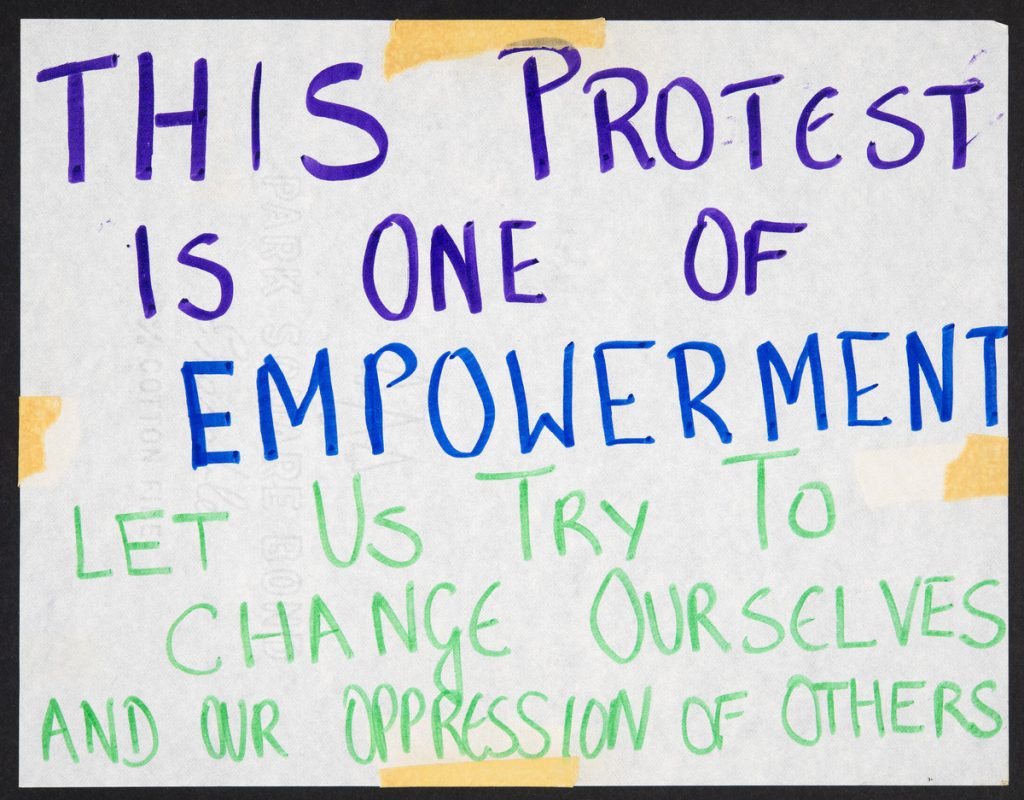 THIS PROTEST
IS ONE OF
EMPOWERMENT
LET US TRY TO
CHANGE OURSELVES
AND OUR OPPRESSION OF OTHERS
PARK S
BOND
COTTON FI